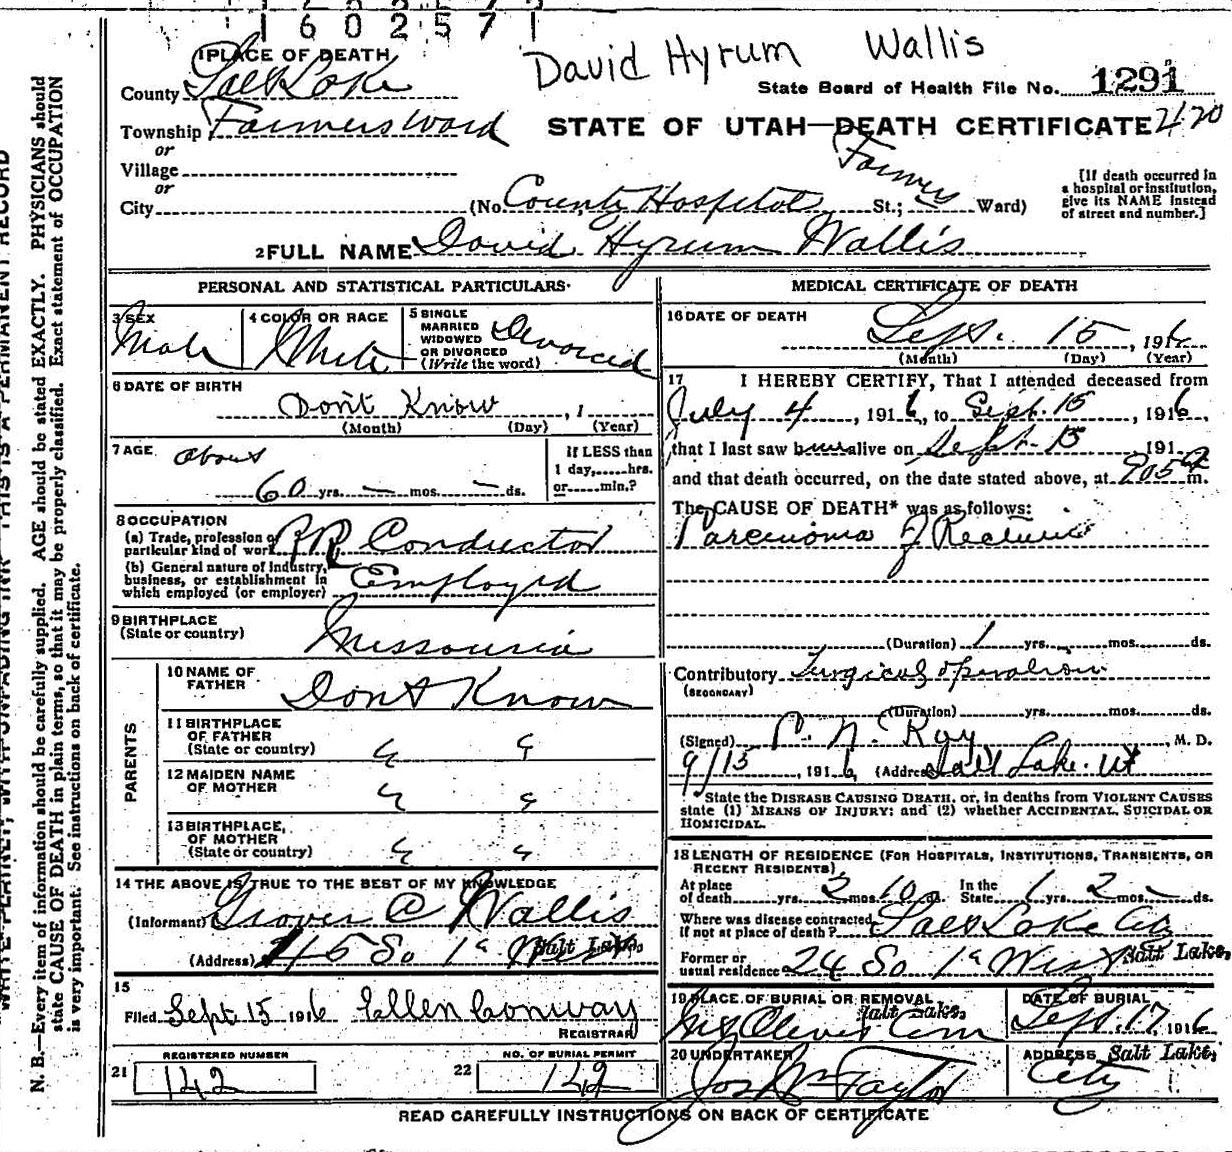 1602571
1 PLACE OF DEATH
David Hyrum Wallis
County Salt Lake
State Board of Health File No. 1291
Township Farmers Ward
STATE OF UTAH—DEATH CERTIFICATE 2120
or
Village
or
City (No. County Hospital St.; Farmers Ward)
[If death occurred in
a hospital or institution,
give its NAME instead
of street and number.]
2 FULL NAME David Hyrum Wallis
PERSONAL AND STATISTICAL PARTICULARS.
3 SEX
Male
4 COLOR OR RACE
White
5 SINGLE
MARRIED
WIDOWED
OR DIVORCED
(Write the word)
Divorced
6 DATE OF BIRTH
Dont Know , 1
(Month) (Day) (Year)
7 AGE about
60 yrs. — mos. — ds.
If LESS than
1 day,......hrs.
or......min.?
8 OCCUPATION
(a) Trade, profession or
particular kind of work RR Conductor
(b) General nature of industry,
business, or establishment in
which employed (or employer) Employd
9 BIRTHPLACE
(State or country) Missouria
PARENTS
10 NAME OF
FATHER Dont Know
11 BIRTHPLACE
OF FATHER
(State or country) " "
12 MAIDEN NAME
OF MOTHER " "
13 BIRTHPLACE,
OF MOTHER
(State or country) " "
14 THE ABOVE IS TRUE TO THE BEST OF MY KNOWLEDGE
(Informant) Grover C Wallis
(Address) 245 So 1st West Salt Lake
15
Filed Sept 15 1916 Ellen Conway
REGISTRAR
REGISTERED NUMBER
21 142
NO. OF BURIAL PERMIT
22 142
MEDICAL CERTIFICATE OF DEATH
16 DATE OF DEATH
Sept. 15, 1916
(Month) (Day) (Year)
17 I HEREBY CERTIFY, That I attended deceased from
July 4, 1916, to Sept. 15, 1916,
that I last saw him alive on Sept. 15 191
and that death occurred, on the date stated above, at 905 a m.
The CAUSE OF DEATH* was as follows:
Carcinoma of Rectum
(Duration) 1 yrs. mos. ds.
Contributory Surgical operation
(SECONDARY)
(Duration) yrs. mos. ds.
(Signed) P. N. Ray, M. D.
9/15, 1916 (Address) Salt Lake. Ut
State the DISEASE CAUSING DEATH, or, in deaths from VIOLENT CAUSES
state (1) MEANS OF INJURY; and (2) whether ACCIDENTAL, SUICIDAL OR
HOMICIDAL.
18 LENGTH OF RESIDENCE (FOR HOSPITALS, INSTITUTIONS, TRANSIENTS, OR
RECENT RESIDENTS)
At place
of death yrs. 2 mos. 10 ds. In the
State 1 yrs. 2 mos. — ds.
Where was disease contracted,
If not at place of death? Salt Lake City
Former or
usual residence 24 So 1st West Salt Lake,
19 PLACE OF BURIAL OR REMOVAL
Mt Olivet Cem Salt Lake,
DATE OF BURIAL
Sept. 17, 1916
20 UNDERTAKER
Jos Wm Taylor
ADDRESS Salt Lake,
City
READ CAREFULLY INSTRUCTIONS ON BACK OF CERTIFICATE
WRITE PLAINLY, WITH UNFADING INK—THIS IS A PERMANENT RECORD
N. B.—Every item of information should be carefully supplied. AGE should be stated EXACTLY. PHYSICIANS should
state CAUSE OF DEATH in plain terms, so that it may be properly classified. Exact statement of OCCUPATION
is very important. See instructions on back of certificate.